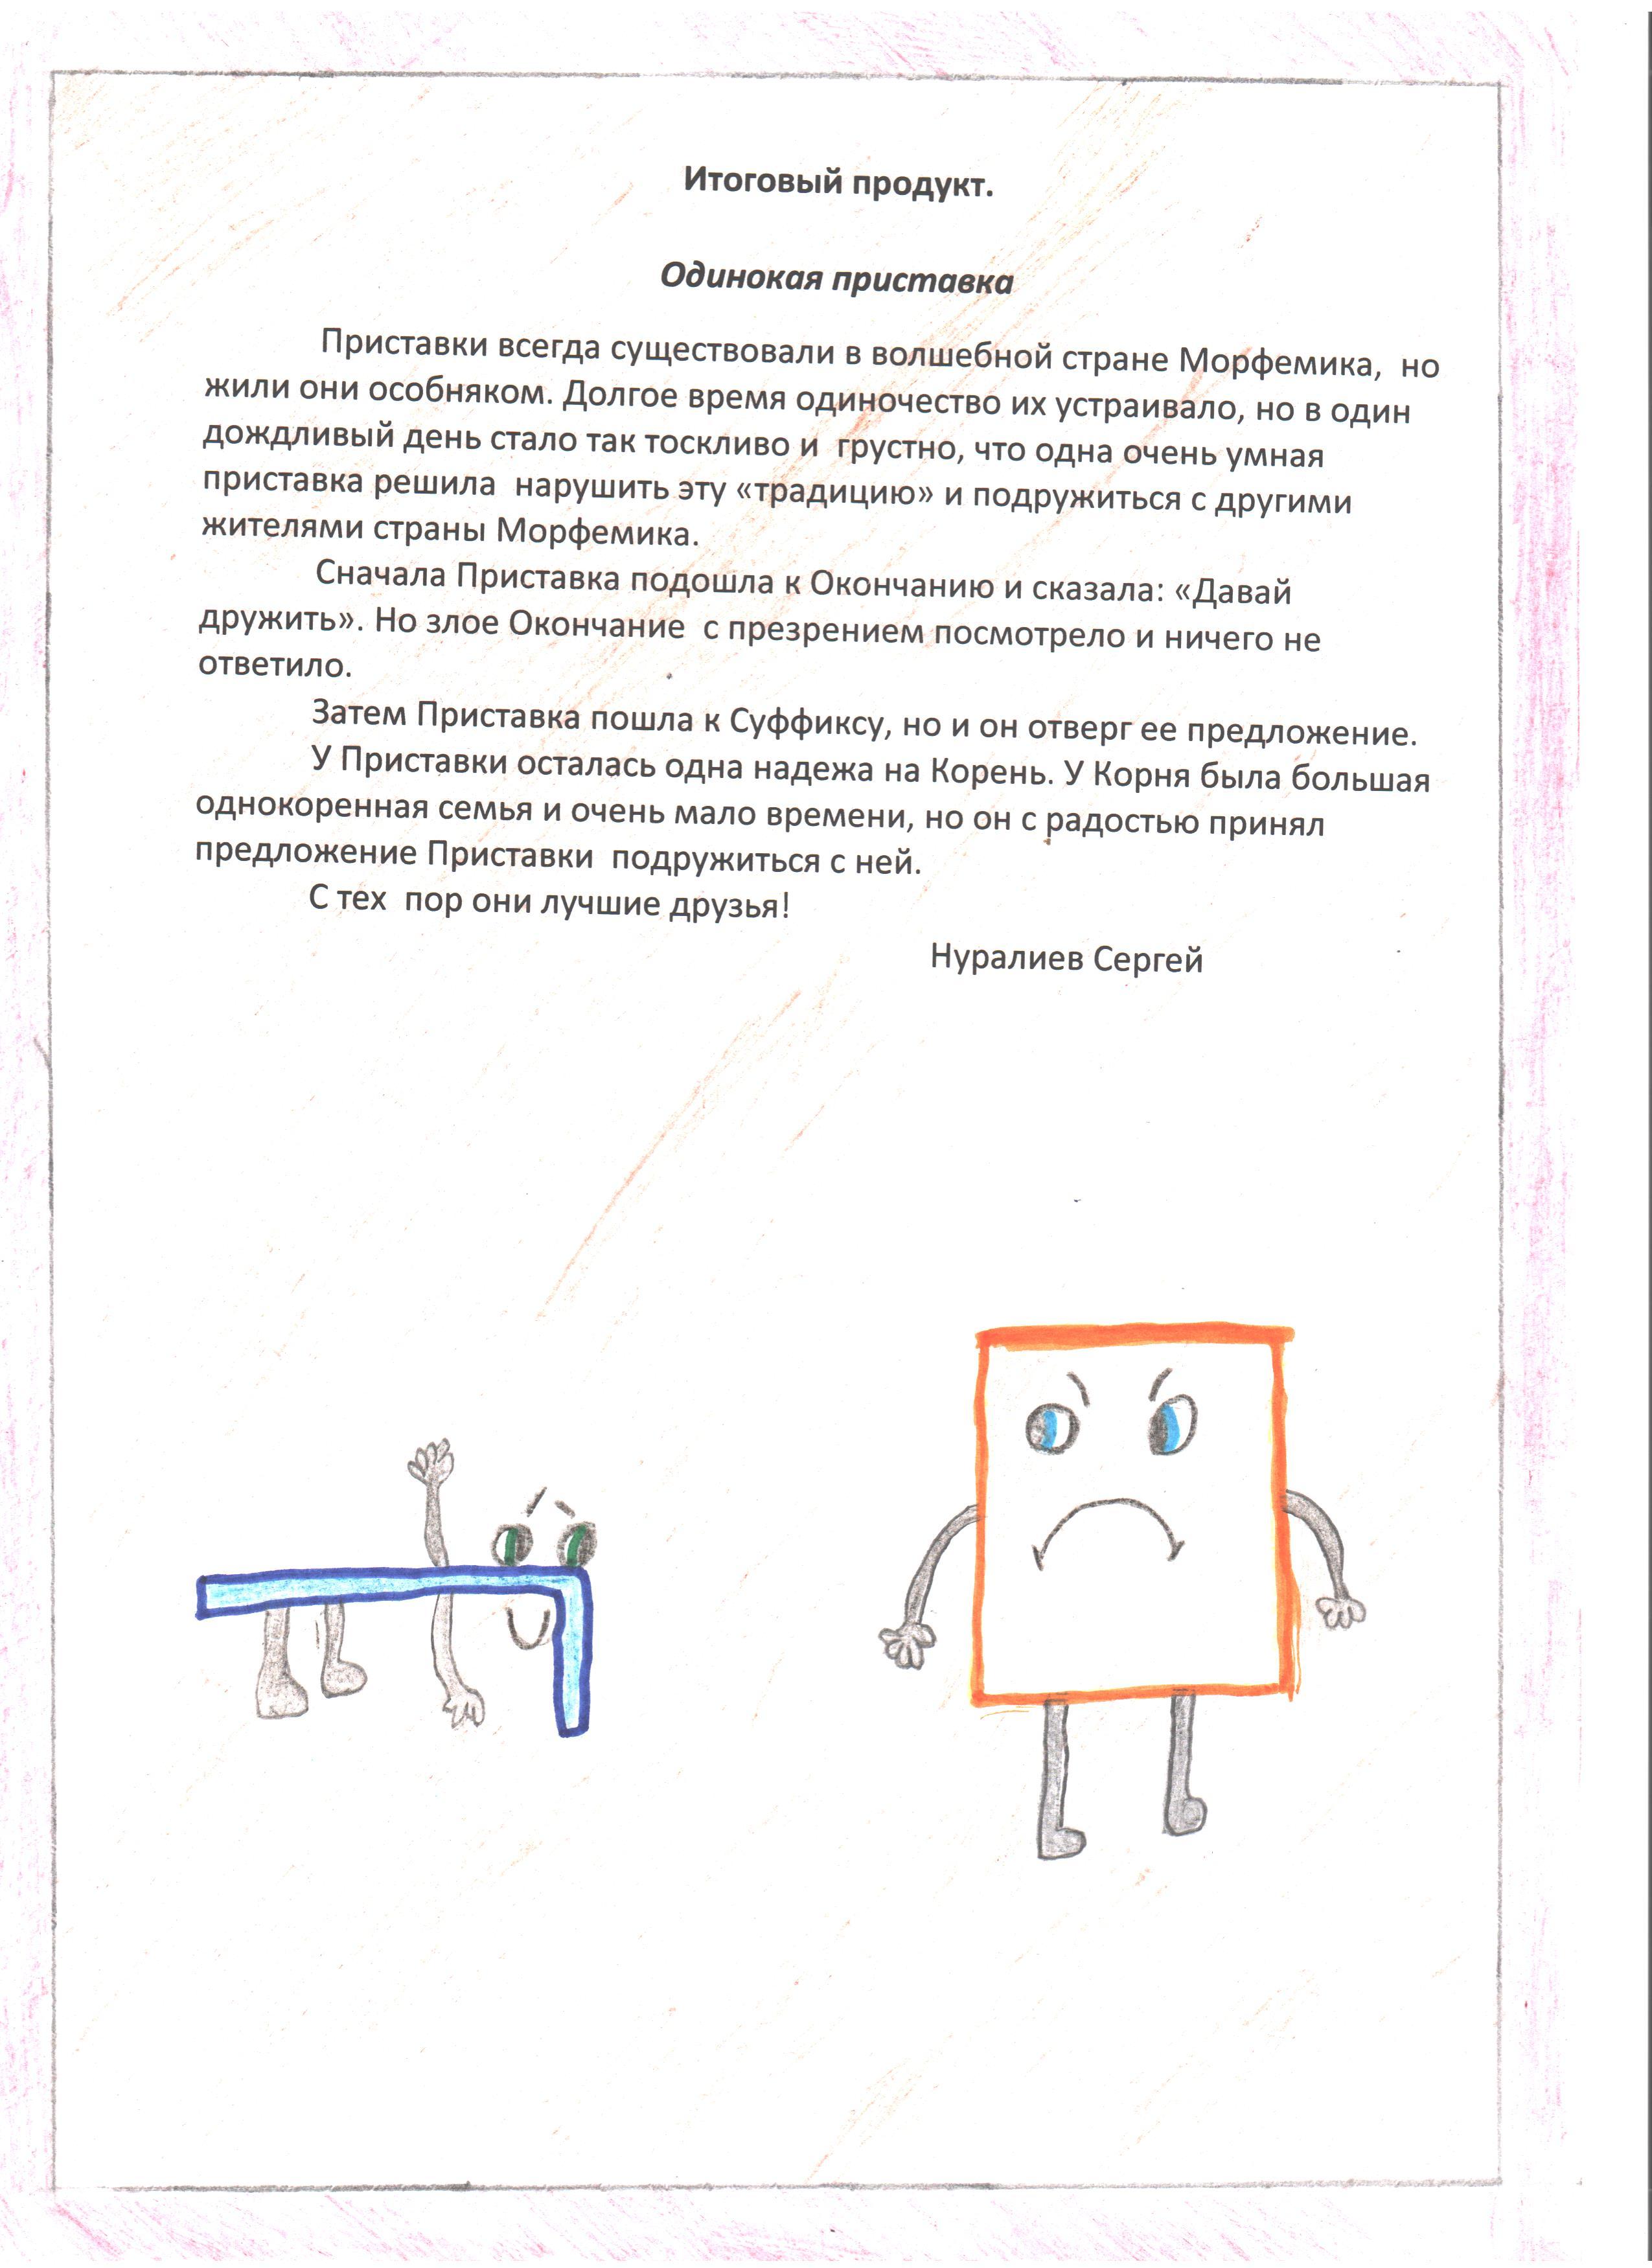 Итоговый продукт.
Одинокая приставка
Приставки всегда существовали в волшебной стране Морфемика, но
жили они особняком. Долгое время одиночество их устраивало, но в один
дождливый день стало так тоскливо и грустно, что одна очень умная
приставка решила нарушить эту «традицию» и подружиться с другими
жителями страны Морфемика.
Сначала Приставка подошла к Окончанию и сказала: «Давай
дружить». Но злое Окончание с презрением посмотрело и ничего не
ответило.
Затем Приставка пошла к Суффиксу, но и он отверг ее предложение.
У Приставки осталась одна надежа на Корень. У Корня была большая
однокоренная семья и очень мало времени, но он с радостью принял
предложение Приставки подружиться с ней.
С тех пор они лучшие друзья!
Нуралиев Сергей